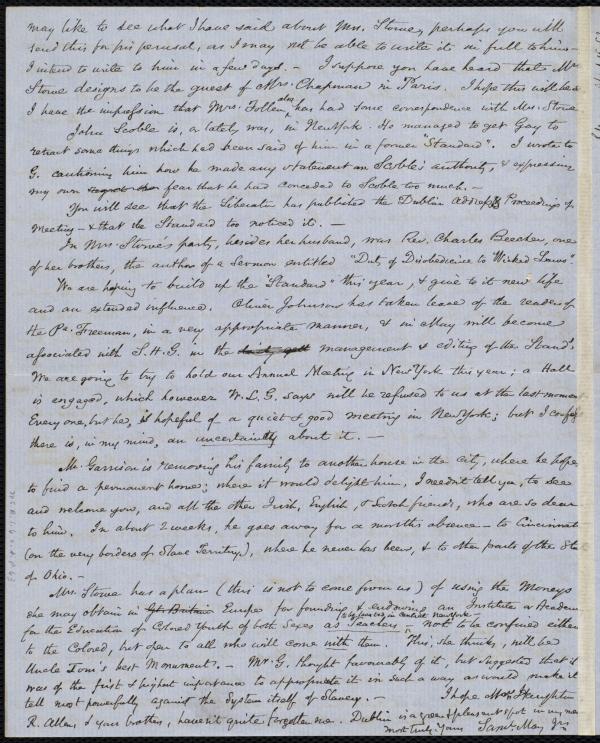 may like to see what I have said about Mrs. Stowe, perhaps you will
send this for his perusal, as I may not be able to write it in full to him.
I intend to write to him in a few days. - I suppose you have heard that Mrs.
Stowe designs to be the guest of Mrs. Chapman in Paris. I hope this will be so.
I have the impression that Mrs. Follen also has had some correspondence with Mrs. Stowe
John Scoble is, or lately was, in New York. He managed to get Gay to
retract some things which had been said of him in a former "Standard". I wrote to
G. cautioning him how he made any statement on Scoble's authority, & expressing
my own fear that he had conceded to Scoble too much. -
You will see that the Liberator has published the Dublin Address & Proceedings of
Meeting - & that the Standard too noticed it. -
In Mrs. Stowe's party, besides her husband, was Rev. Charles Beecher, one
of her brothers, the author of a Sermon entitled "Duty of Disobedience to Wicked Laws".
We are hoping to build up the "Standard" this year, & give to it new life
and an extended influence. Oliver Johnson has taken leave of the readers of
the Pa. Freeman, in a very appropriate manner, & in May will become
associated with S.H.G. in the management & editing of the Stand'd.
We are going to try to hold our Annual Meeting in New York this year; a Hall
is engaged, which however W.L.G. says will be refused to us at the last moment.
Every one, but he, is hopeful of a quiet & good meeting in New York; but I confess
there is, in my mind, an uncertainty about it. -
Mr. Garrison is removing his family to another house in the city, where he hopes
to find a permanent home; where it would delight him, I needn't tell you, to see
and welcome you, and all the other Irish, English, & Scotch friends, who are so dear
to him. In about 2 weeks, he goes away for a month's absence - to Cincinnati
(on the very borders of Slave Territory), where he never has been, & to other parts of the State
of Ohio. -
Mrs. Stowe has a plan (this is not to come from us) of using the Moneys
she may obtain in Gt. Britain Europe for founding & endowing an Institute or Academy
for the Education of Colored Youth of both Sexes as Teachers - not to be confined either
to the Colored, but open to all who will come with them. This, she thinks, will be
Uncle Tom's best Monument. - Mr. G. thought favorably of it, but suggested that it
was of the first & highest importance to appropriate it in such a way as would make it
tell most powerfully against the System itself of Slavery. - I hope Mrs. Haughton
R. Allen, & your brother, haven't quite forgotten me. Dublin is a green & pleasant spot in my mem
most truly Yours Saml. May Jr.